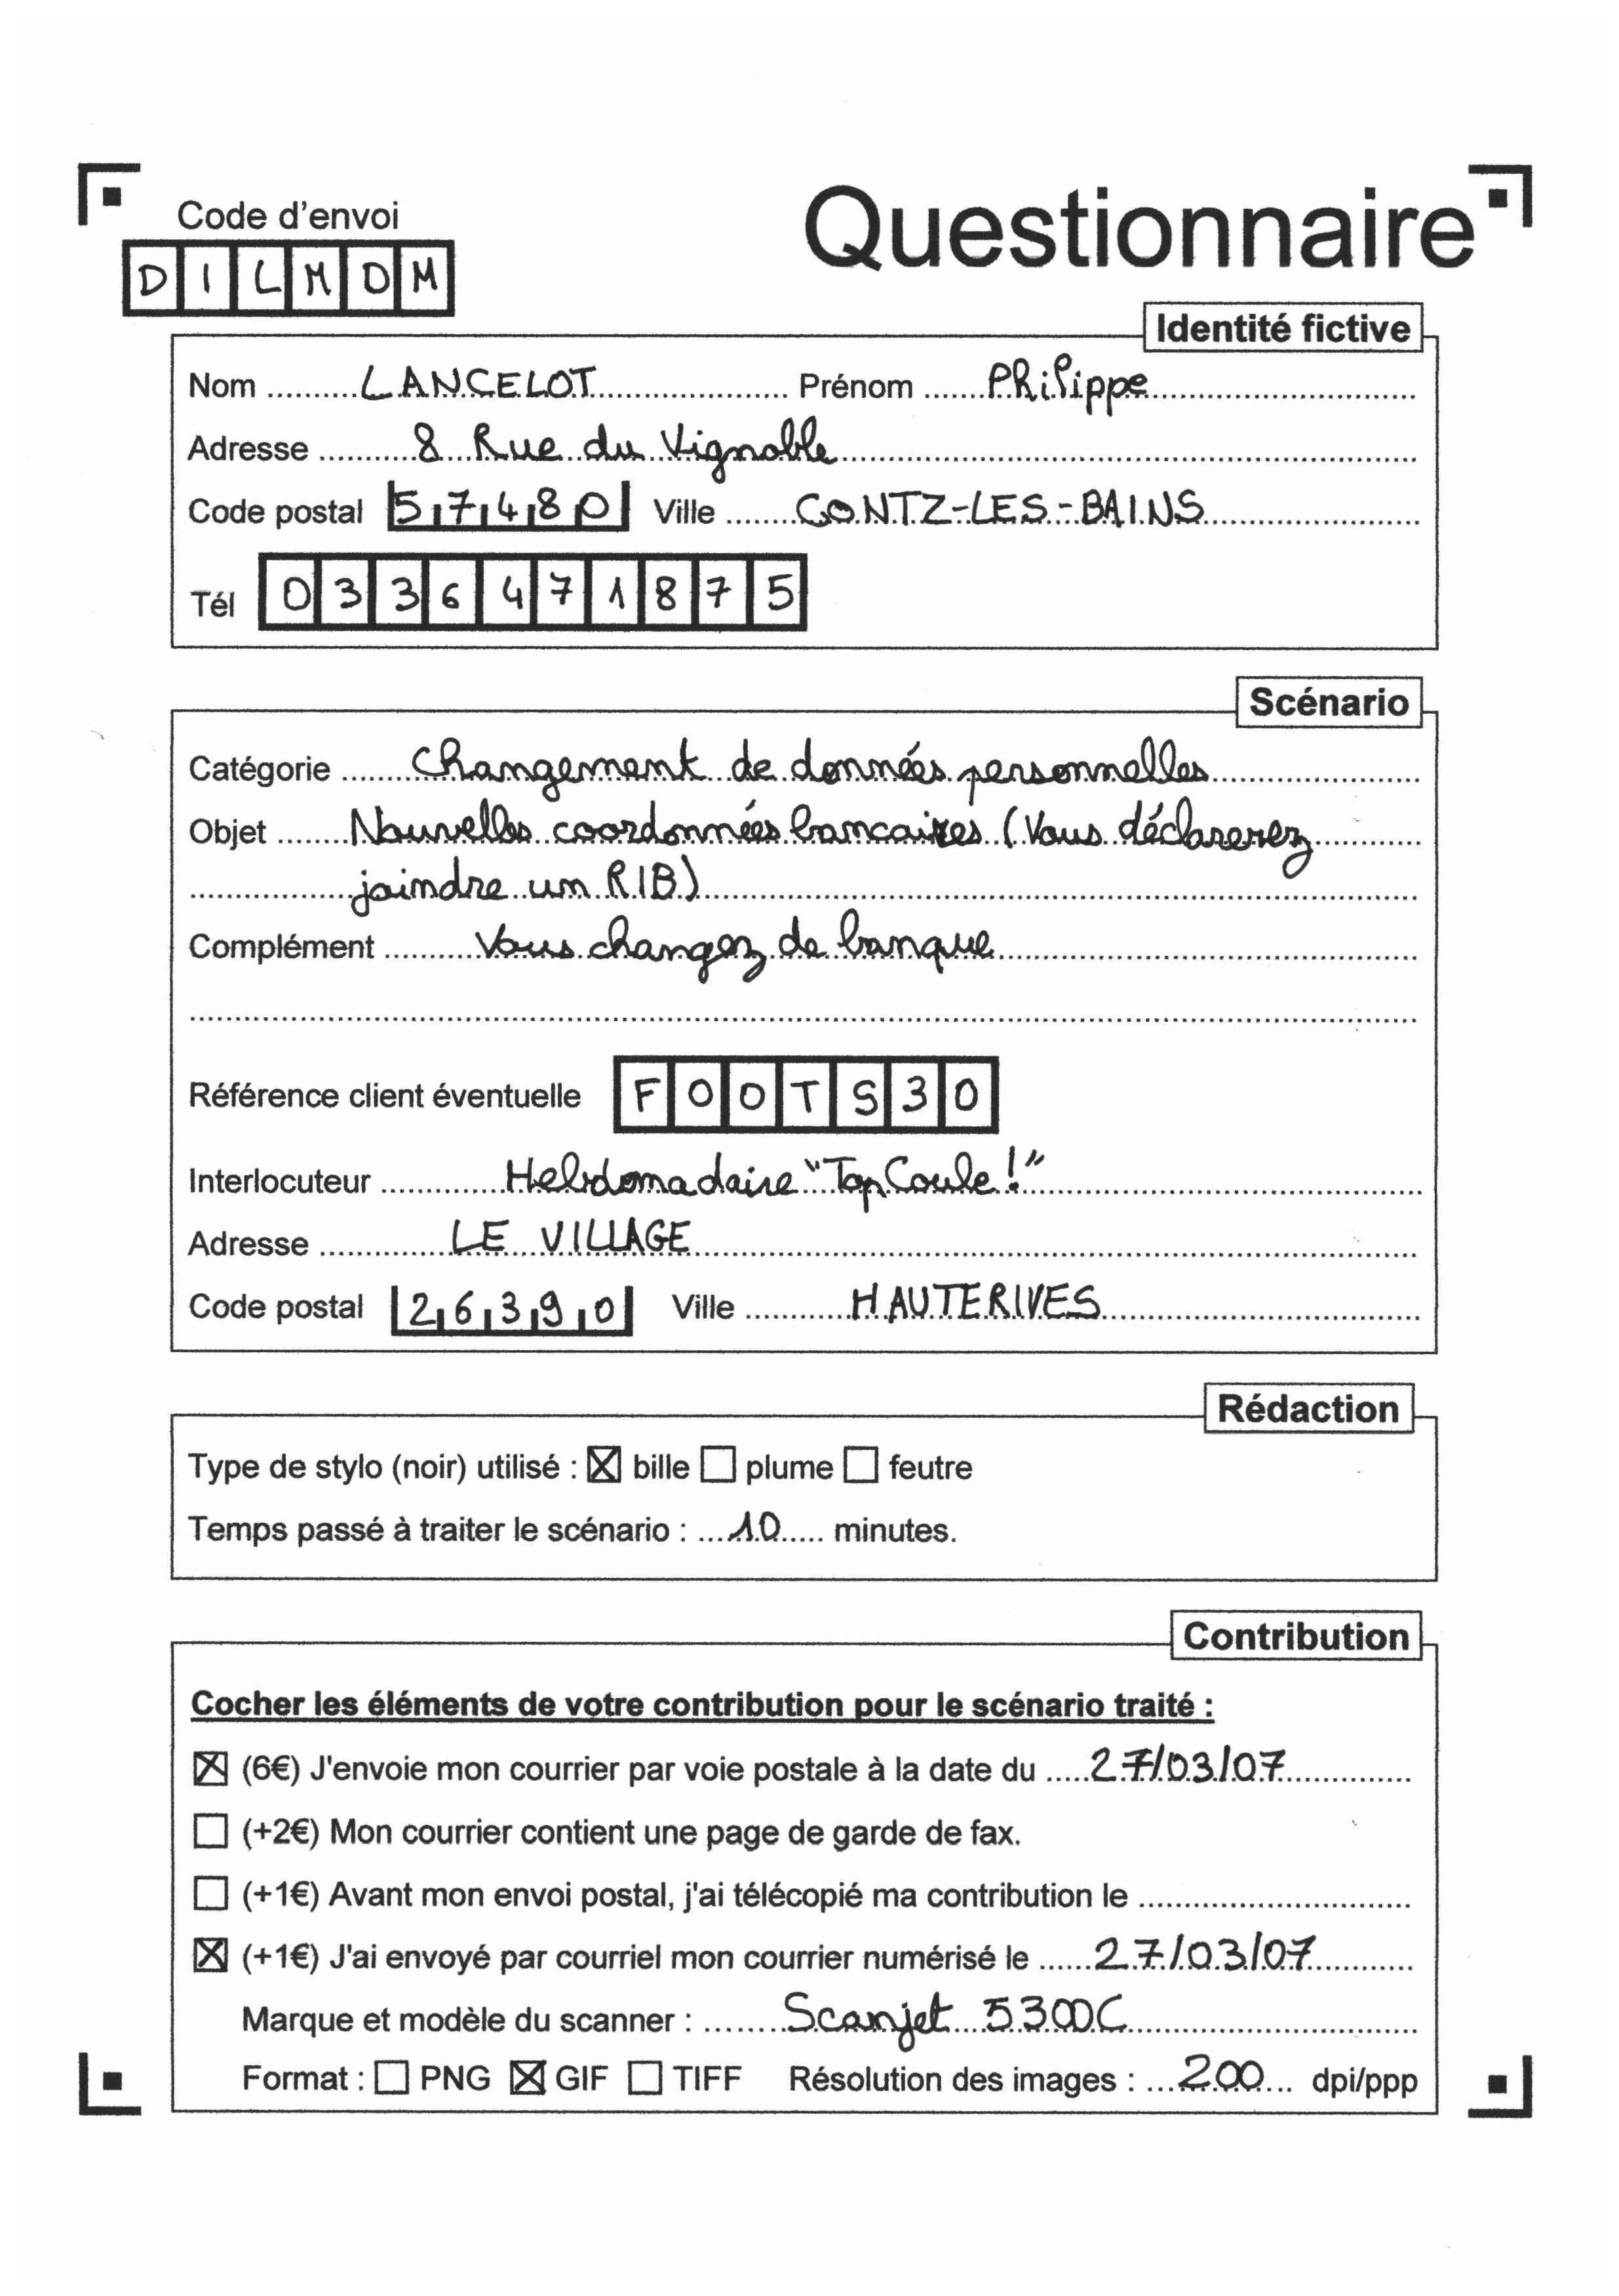 Code d'envoi
Questionnaire
DILMOM
Identité fictive
Nom LANCELOT Prénom Philippe
Adresse 8 Rue du Vignoble
Code postal 57480 Ville CONTZ-LES-BAINS
Tél 0336471875
Scénario
Catégorie Changement de données personnelles
Objet Nouvelles coordonnées bancaires (Vous déclarerez
joindre un RIB)
Complément Vous changez de banque
Référence client éventuelle FOOTS30
Interlocuteur Hebdomadaire "Top Coule !"
Adresse LE VILLAGE
Code postal 26390 Ville HAUTERIVES
Rédaction
Type de stylo (noir) utilisé : ☒ bille ☐ plume ☐ feutre
Temps passé à traiter le scénario : 10 minutes.
Contribution
Cocher les éléments de votre contribution pour le scénario traité :
☒ (6€) J'envoie mon courrier par voie postale à la date du 27/03/07
☐ (+2€) Mon courrier contient une page de garde de fax.
☐ (+1€) Avant mon envoi postal, j'ai télécopié ma contribution le
☒ (+1€) J'ai envoyé par courriel mon courrier numérisé le 27/03/07
Marque et modèle du scanner : Scanjet 5300C
Format : ☐ PNG ☒ GIF ☐ TIFF Résolution des images : 200 dpi/ppp